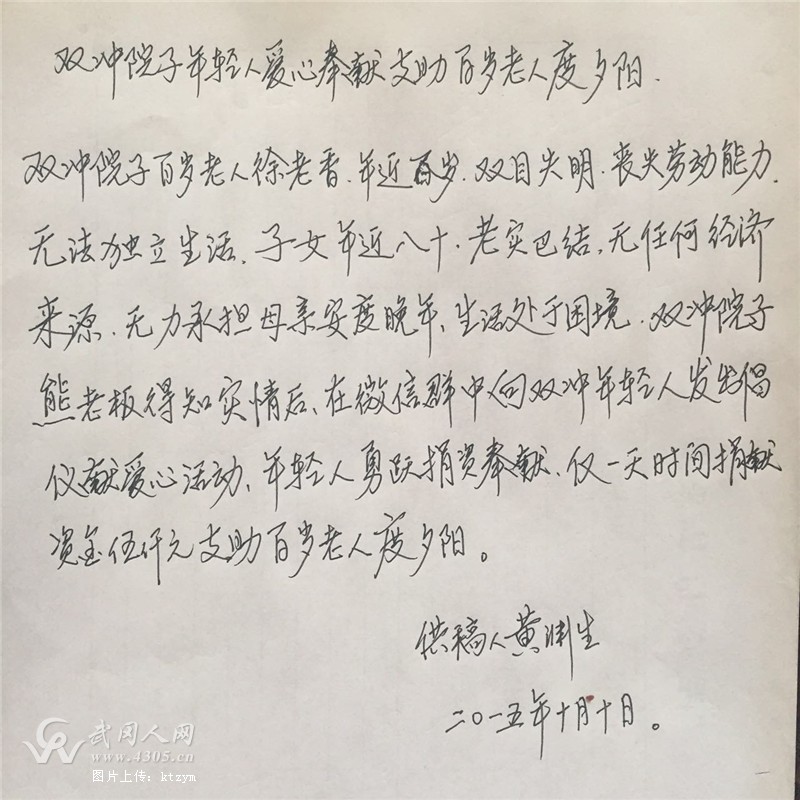 双冲院子年轻人爱心奉献支助百岁老人度夕阳.
双冲院子百岁老人徐老香.年近百岁.双目失明.丧失劳动能力.
无法独立生活.子女年近八十.老实巴结.无任何经济
来源.无力承担母亲安度晚年、生活处于困境.双冲院子
熊老板得知实情后、在微信群中向双冲年轻人发出倡
仪献爱心活动、年轻人勇跃捐资奉献、仅一天时间捐献
资金伍仟元支助百岁老人度夕阳。
供稿人黄渊生
二〇一五年十月十日。
武冈人网
www.4305.cn
图片上传：ktzym